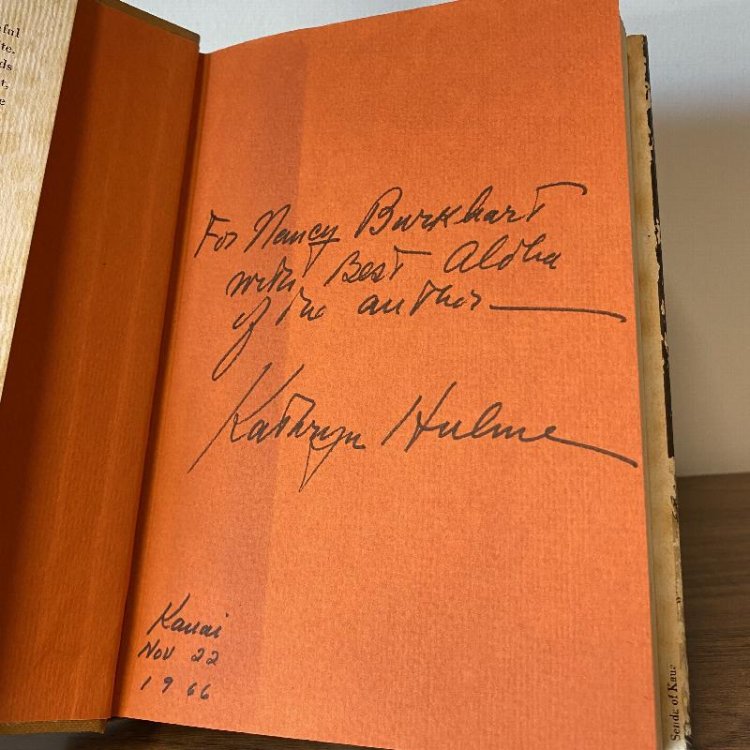 ful
te.
ds
t,
e
For Nancy Burkhart
with Best Aloha
of the author
Kathryn Hulme
Kauai
Nov 22
1966
of Kaua